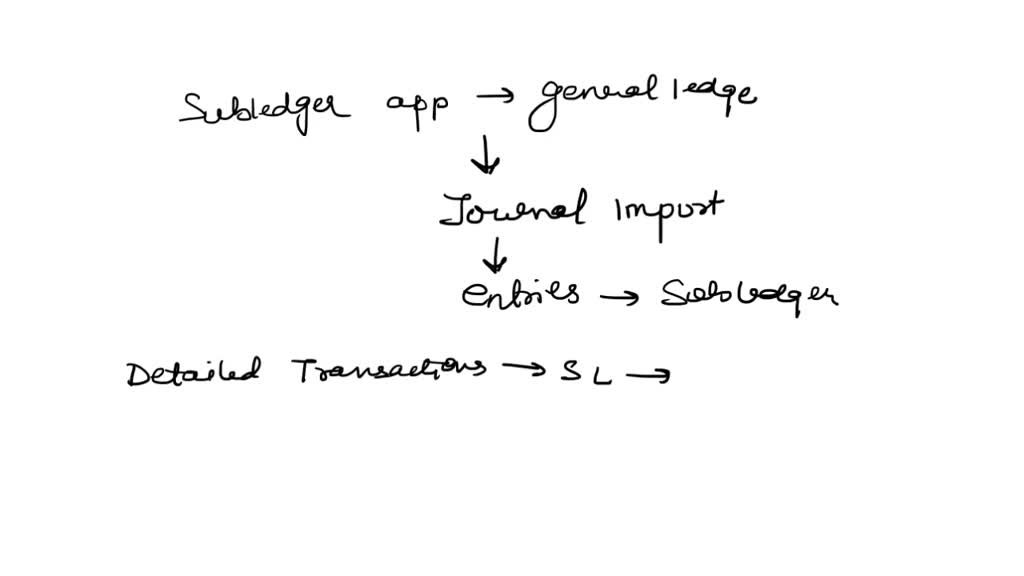 Subledger app → general ledge
↓
Journal Import
↓
entries → Subledger
Detailed Transactions → SL →